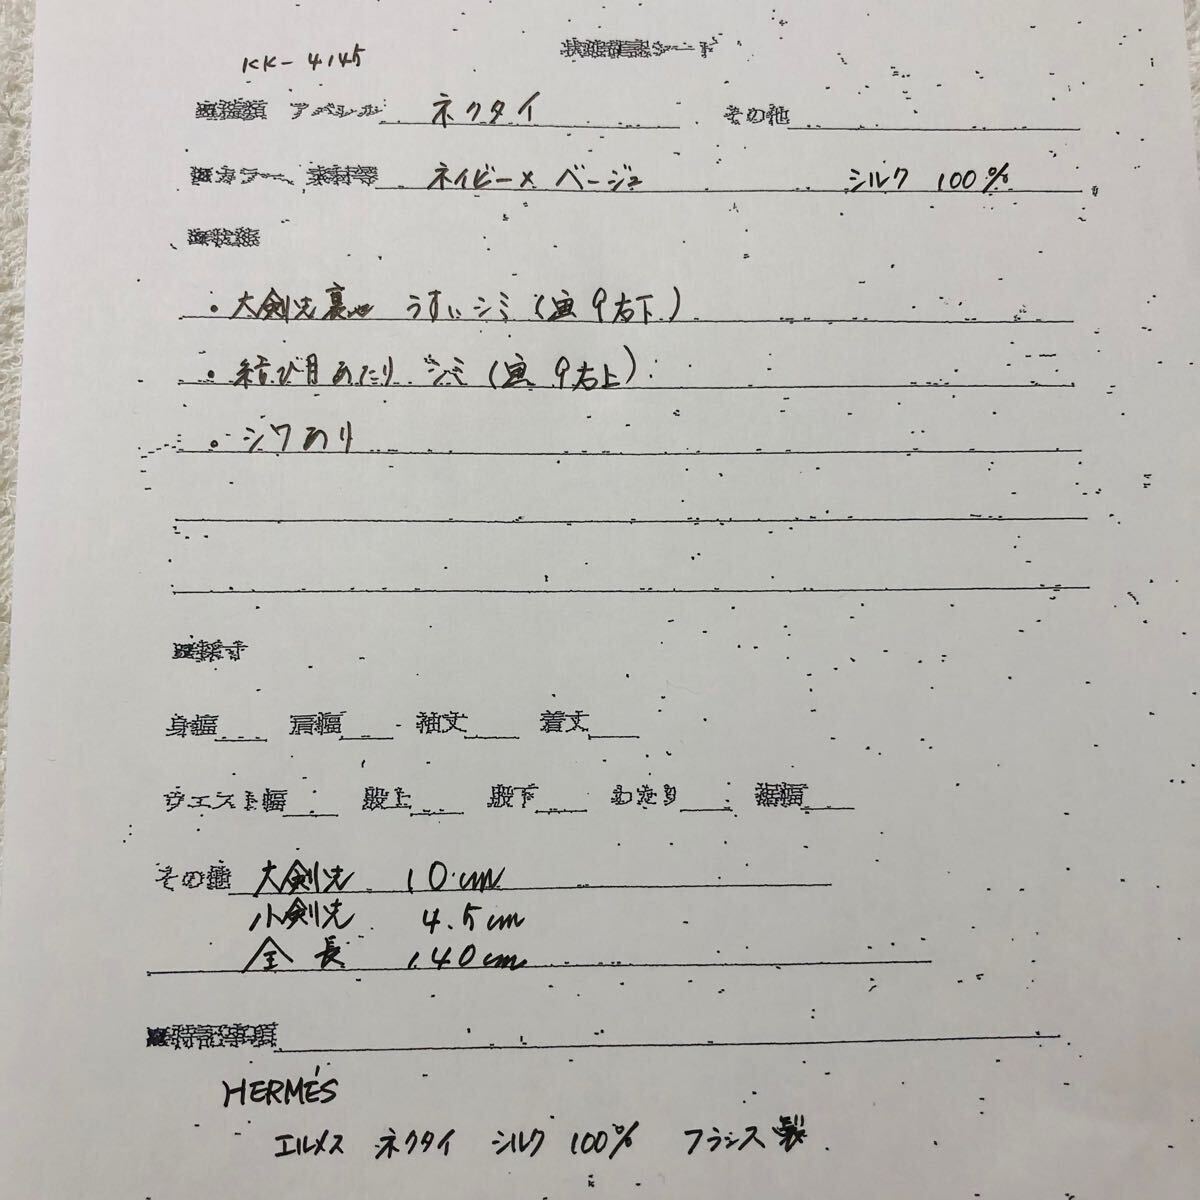 KK-4145
シート
種類 アパレル ネクタイ その他
カラー、素材等 ネイビー× ベージュ シルク 100%
状態
・大剣先裏地 うすいシミ(画9右下)
・結び目あたり シミ(画9右上)
・シワあり
採寸
身幅 肩幅 袖丈 着丈
ウエスト幅 股上 股下 わたり 裾幅
その他 大剣先 10cm
小剣先 4.5cm
全長 140cm
特記事項
HERMÉS
エルメス ネクタイ シルク 100% フランス製